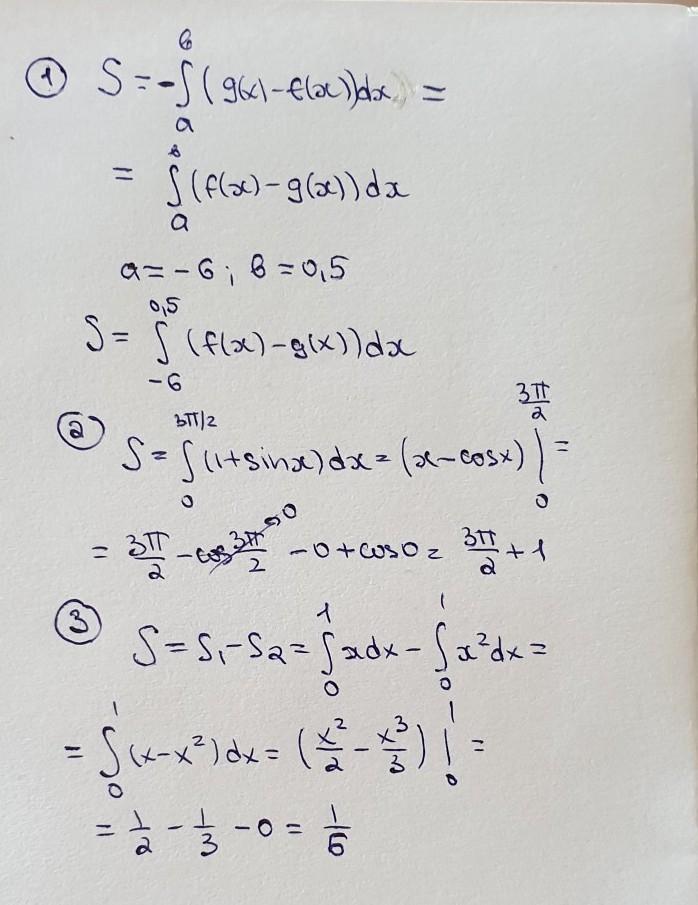 ① S = -∫_a^b (g(x) - f(x))dx =
= ∫_a^b (f(x) - g(x))dx
a = -6; b = 0,5
S = ∫_{-6}^{0,5} (f(x) - g(x))dx
② S = ∫_0^{3π/2} (1+sinx)dx = (x - cosx) |_0^{3π/2} =
= 3π/2 - cos 3π/2 →0 - 0 + cos0 = 3π/2 + 1
③ S = S₁ - S₂ = ∫_0^1 xdx - ∫_0^1 x²dx =
= ∫_0^1 (x - x²)dx = (x²/2 - x³/3) |_0^1 =
= 1/2 - 1/3 - 0 = 1/6